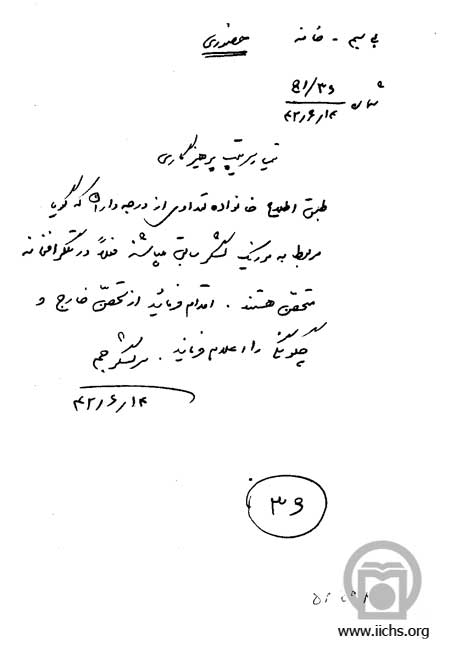 بی سیم - خانه حضوری
شماره ۵۱/۳۶
۴۲/۶/۱۴
تیمسار سرتیپ پرهیزکاری
طبق اطلاع خانواده تعدادی از درجه داران که گویا
مربوط به موزیک لشکر می باشند فعلاً در تلگرافخانه
متحصن هستند . اقدام فرمائید از تحصن خارج و
چگونگی را اعلام فرمائید . سرلشکر جم
۴۲/۶/۱۴
۳۶
www.iichs.org